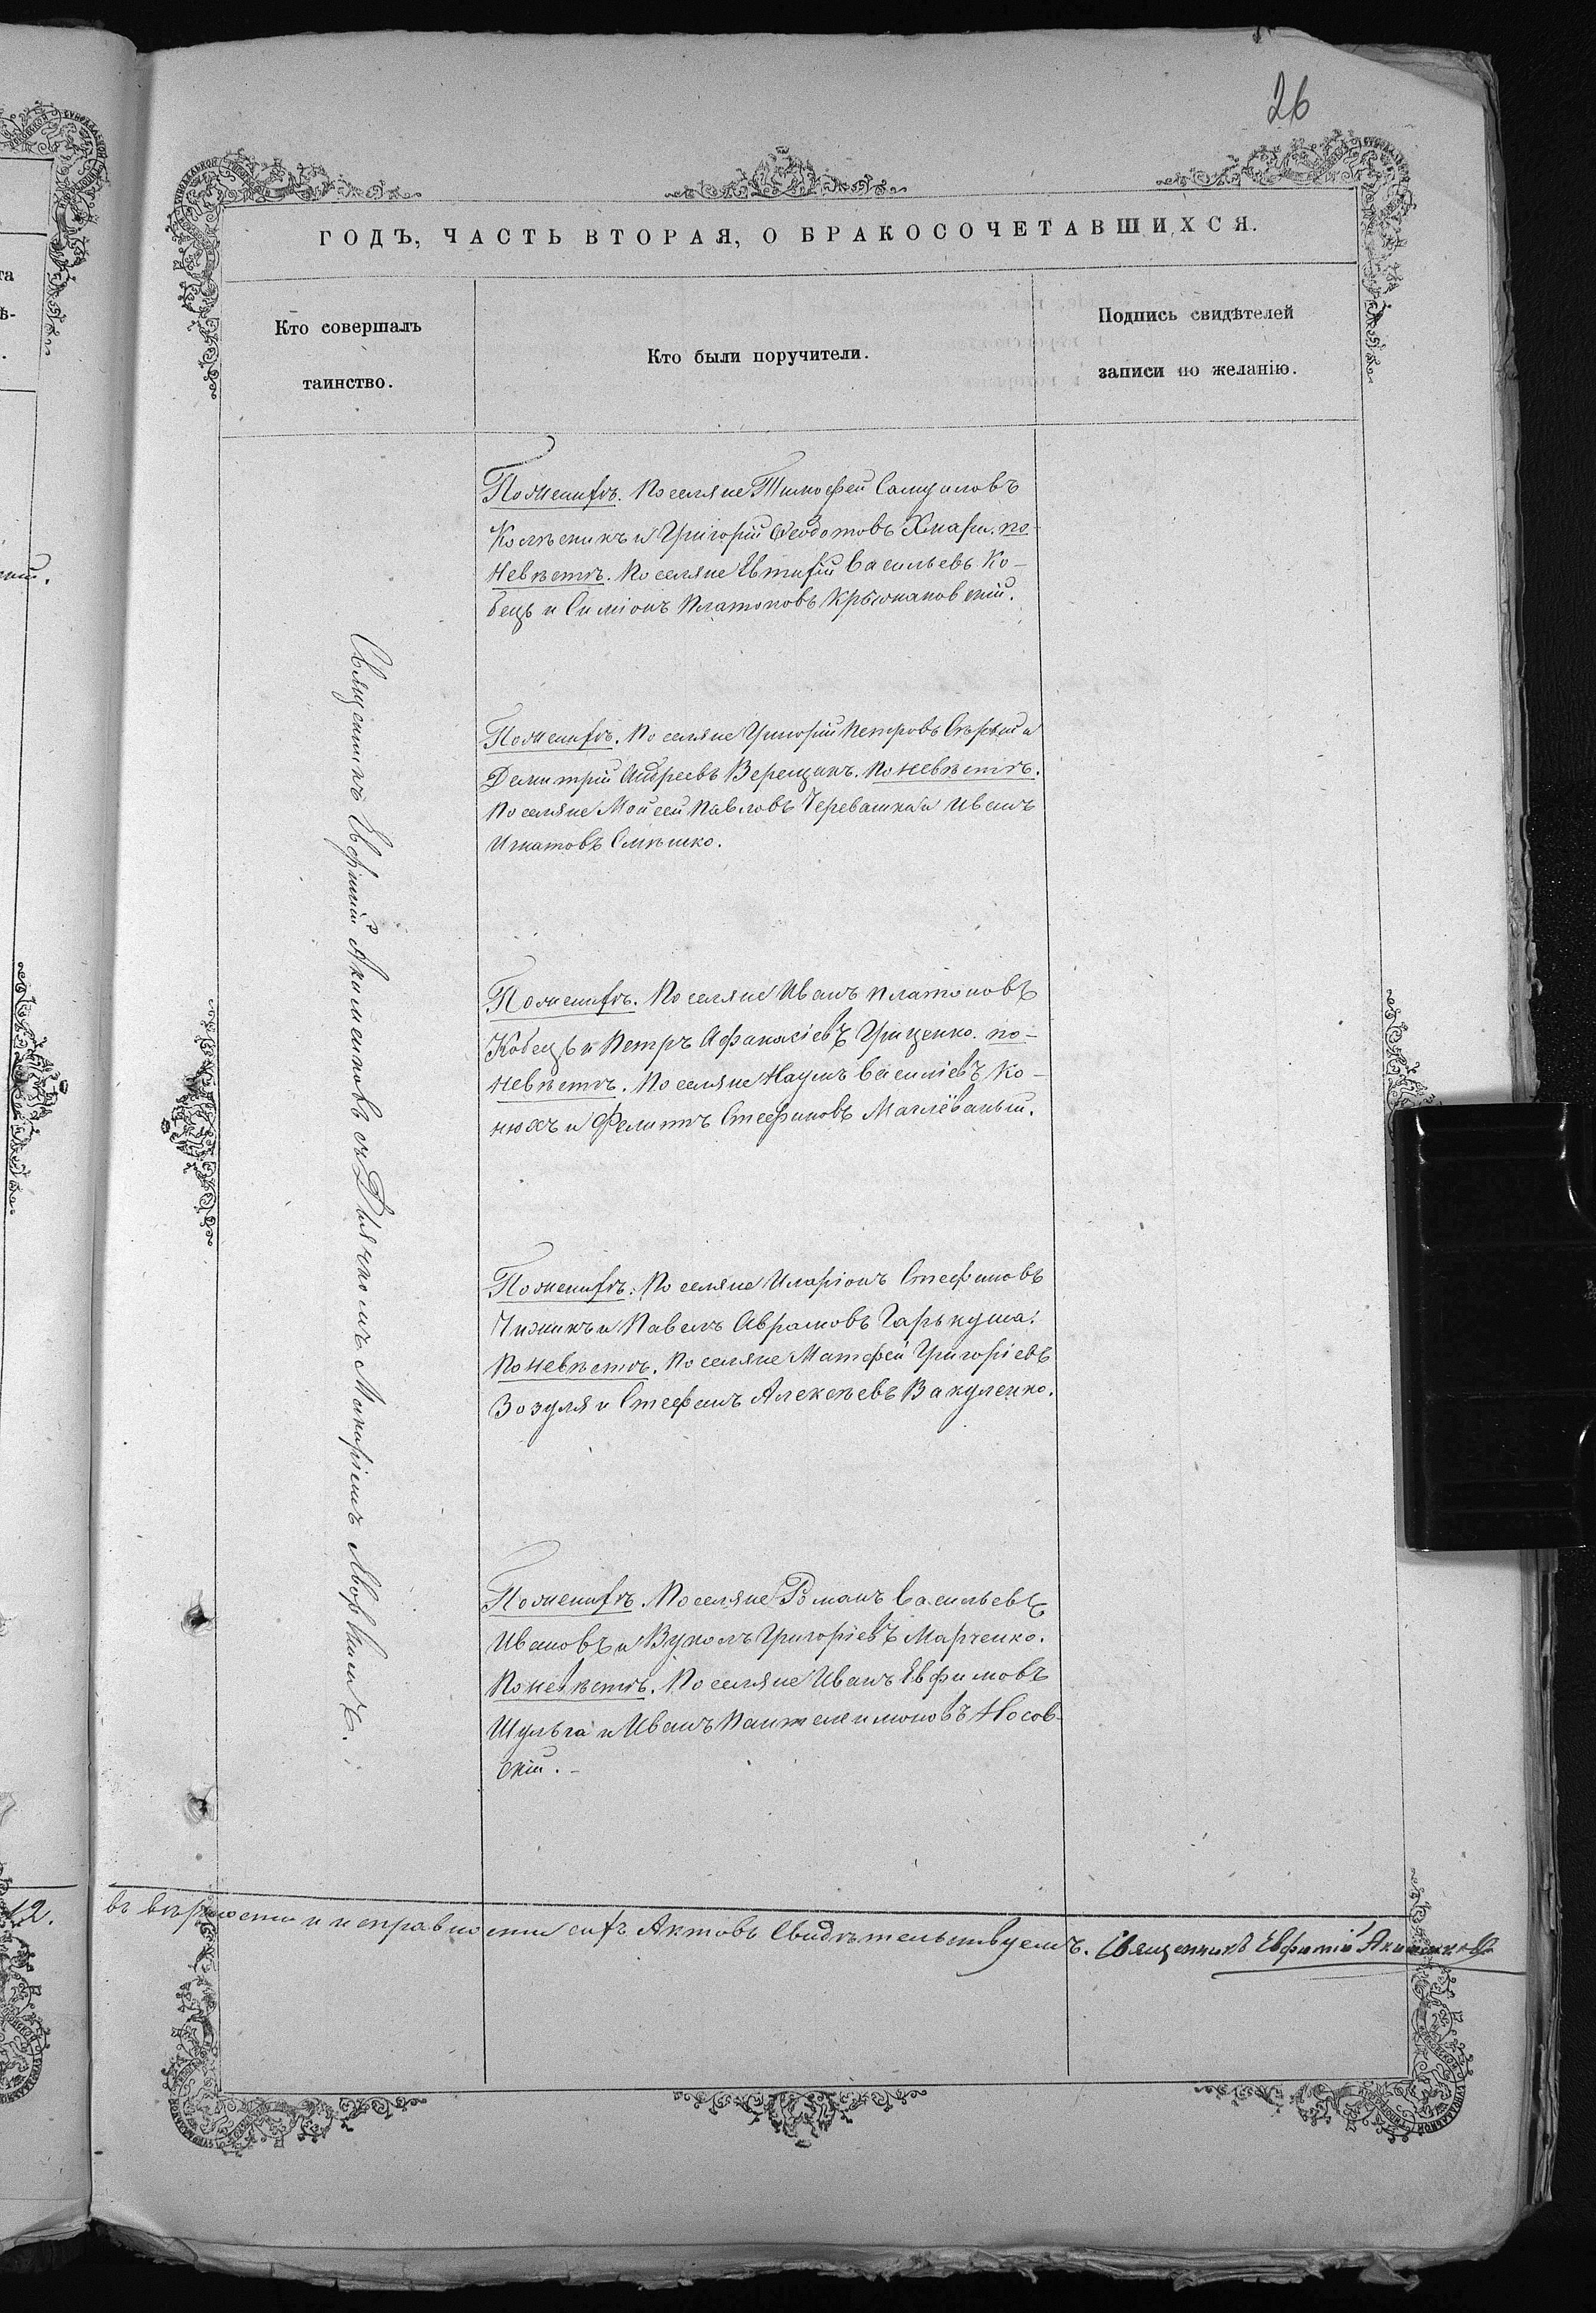 26
ГОДЪ, ЧАСТЬ ВТОРАЯ, О БРАКОСОЧЕТАВШИХСЯ.
Кто совершалъ
таинство.
Кто были поручители.
Подпись свидѣтелей
записи по желанію.
Священникъ Евфимій Акименковъ съ Дьячкомъ Макаріемъ
По женихѣ. Поселяне Тимофей Самуиловъ
Колѣсникъ и Григорій Ѳеодотовъ Хмара. по
невѣстѣ. Поселяне Евтихій Васильевъ Ко-
бецъ и Симіонъ Платоновъ Крыжановскій.
По женихѣ. Поселяне Григорій Петровъ Сѣрый и
Демитрій Андреевъ Верещакъ. По невѣстѣ.
Поселяне Мойсей Павловъ Черевашка и Иванъ
Игнатовъ Смѣшко.
По женихѣ. Поселяне Иванъ Платоновъ
Кобецъ и Петръ Афанасіевъ Гриценко. по-
невѣстѣ. Поселяне Наумъ Василіевъ Ко-
нюхъ и Филиппъ Стефановъ Маглёваный.
По женихѣ. Поселяне Иларіонъ Стефановъ
Чижикъ и Павелъ Аврамовъ Гарькуша.
По невѣстѣ. Поселяне Матфей Григоріевъ
Зозуля и Стефанъ Алексѣевъ Вакуленко.
По женихѣ. Поселяне Романъ Васильевъ
Ивановъ и Вуколъ Григоріевъ Марченко.
По невѣстѣ. Поселяне Иванъ Евфимовъ
Шульга и Иванъ Пантелеимоновъ Носов-
скій.
12.
въ вѣрности и исправности сихъ Актовъ Свидѣтельствуемъ. Священникъ Евфимій Акименковъ